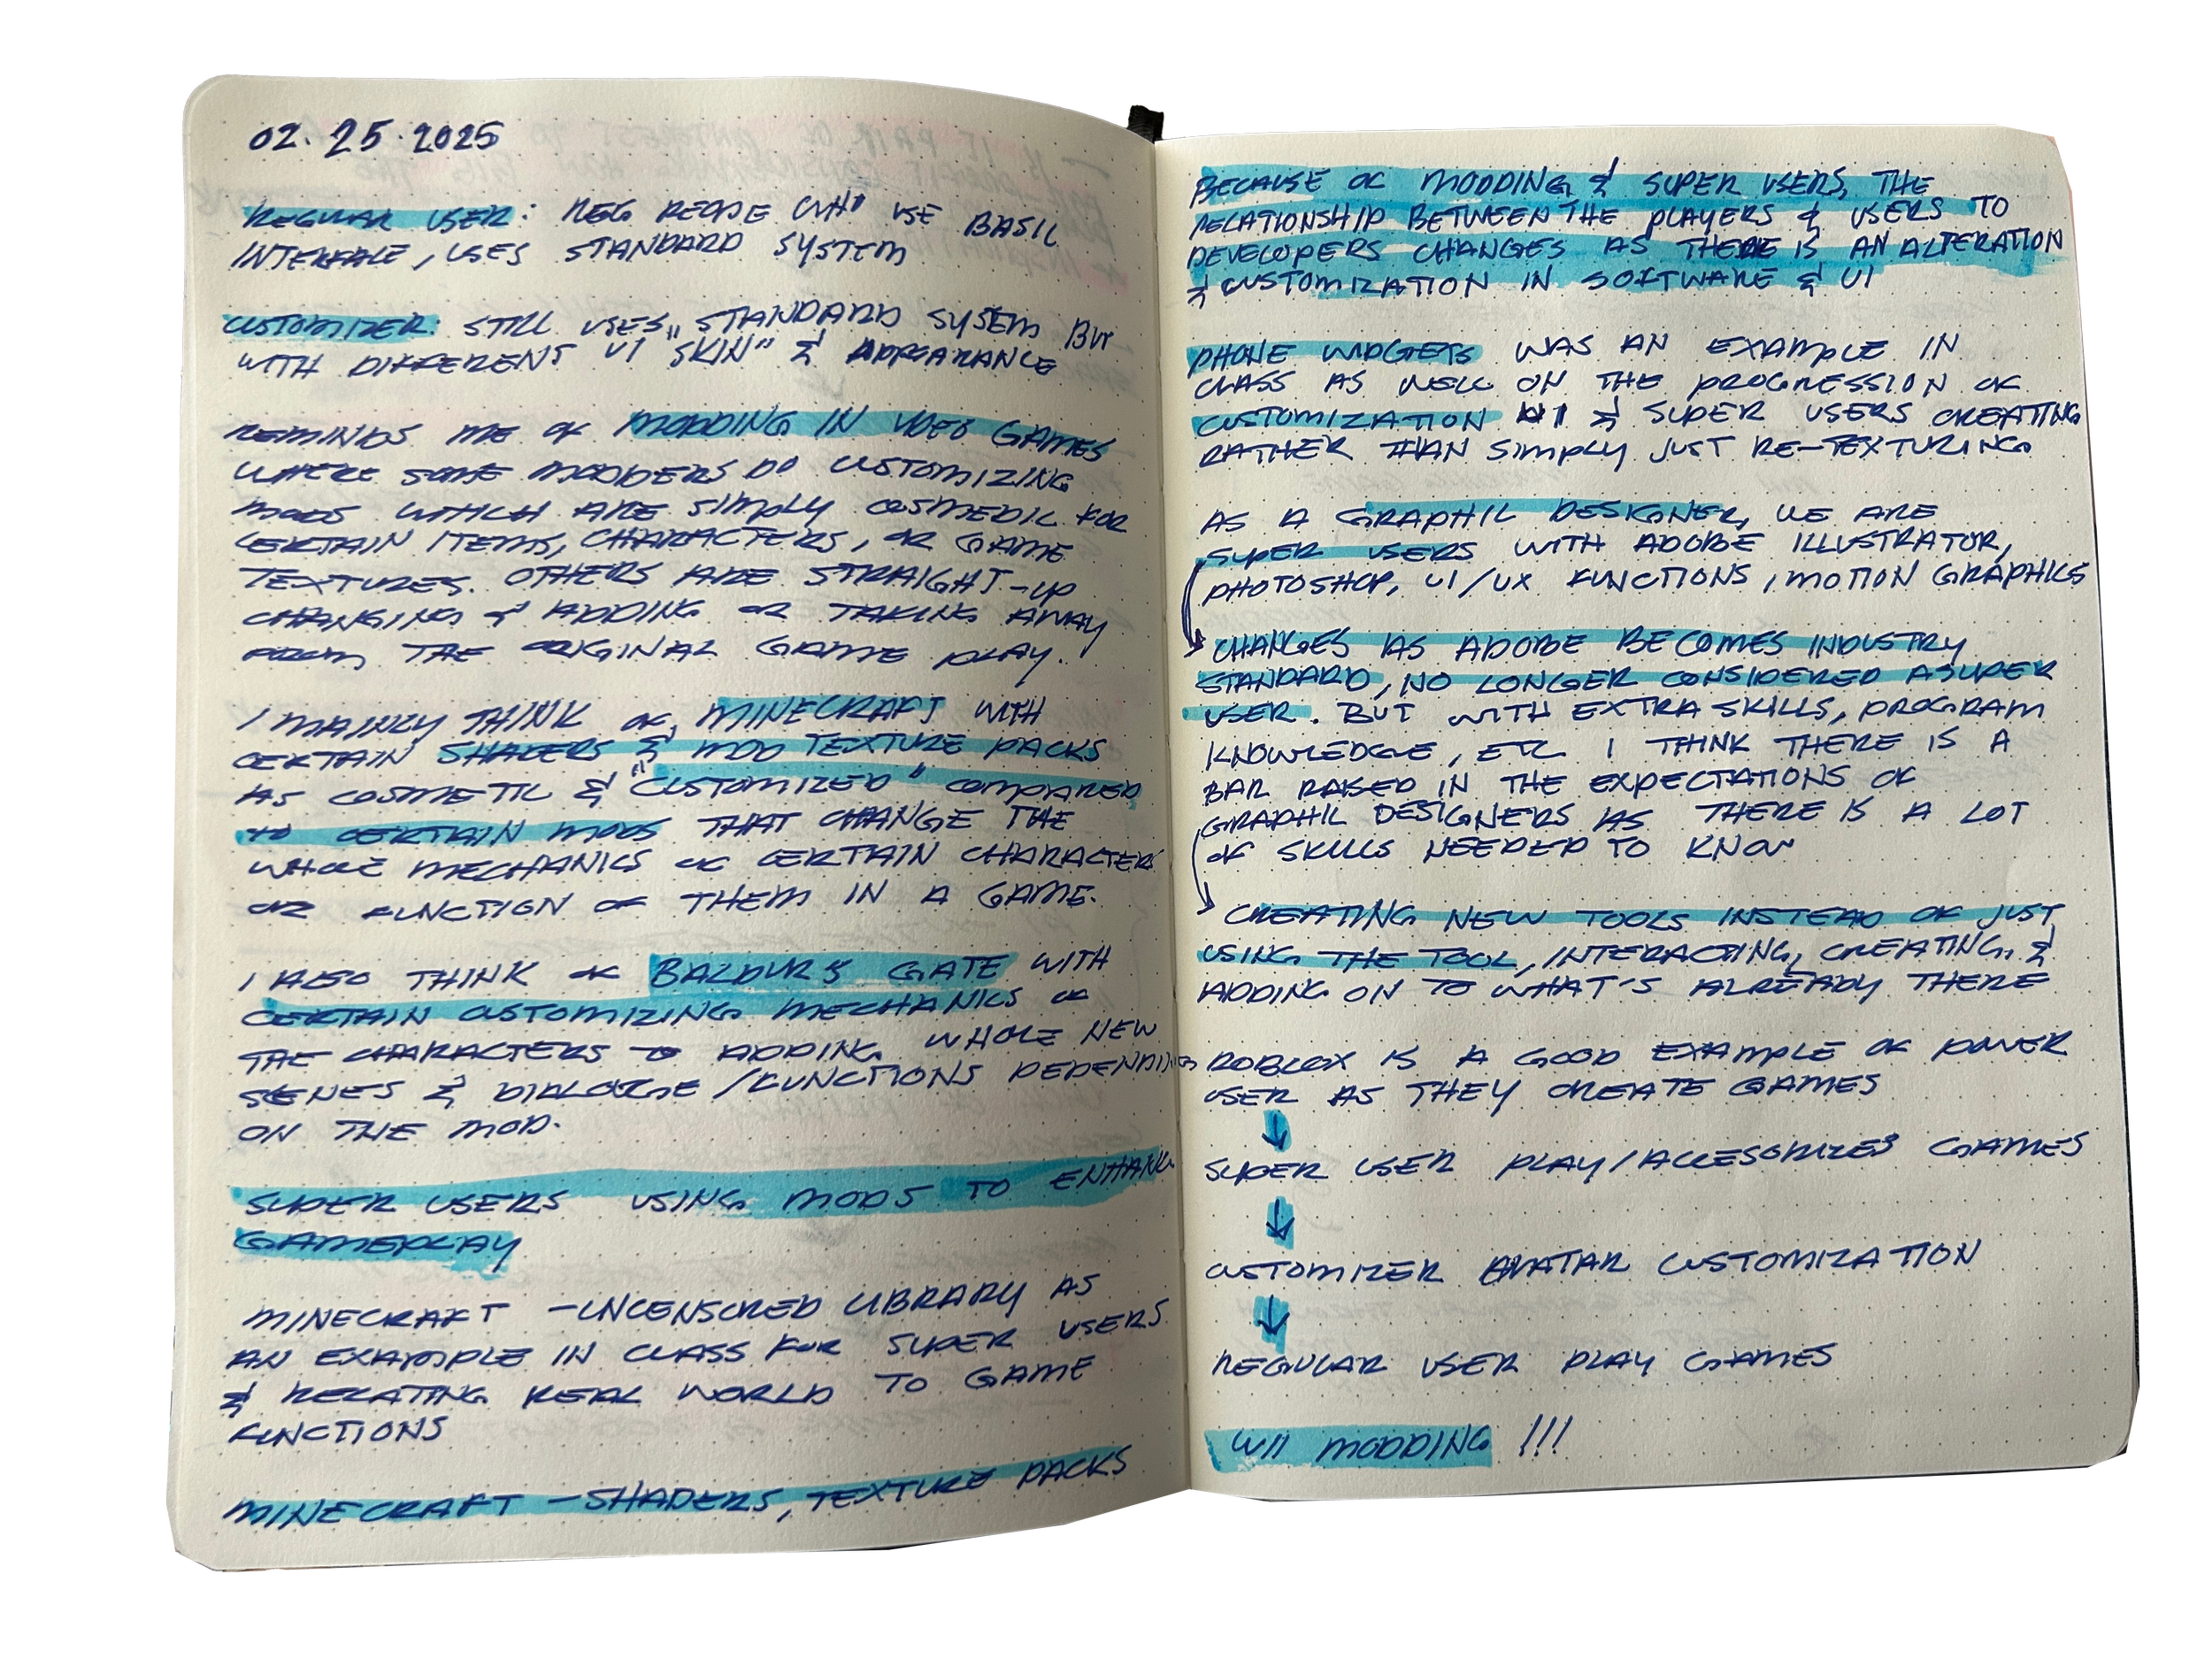 02.25.2025
REGULAR USER: REG PEOPLE WHO USE BASIC
INTERFACE, USES STANDARD SYSTEM
CUSTOMIZER: STILL USES STANDARD SYSTEM BUT
WITH DIFFERENT UI "SKIN" & APPEARANCE
REMINDS ME OF MODDING IN VIDEO GAMES
WHERE SOME MODDERS DO CUSTOMIZING
MODS WHICH ARE SIMPLY COSMEDIC FOR
CERTAIN ITEMS, CHARACTERS, OR GAME
TEXTURES. OTHERS ARE STRAIGHT-UP
CHANGING & ADDING OR TAKING AWAY
FROM THE ORIGINAL GAME PLAY.
I MAINLY THINK OF MINECRAFT WITH
CERTAIN SHADERS & MOD TEXTURE PACKS
AS COSMETIC & "CUSTOMIZED" COMPARED
TO CERTAIN MODS THAT CHANGE THE
WHOLE MECHANICS OF CERTAIN CHARACTERS
OR FUNCTION OF THEM IN A GAME.
I ALSO THINK OF BALDUR'S GATE WITH
CERTAIN CUSTOMIZING MECHANICS OF
THE CHARACTERS TO ADDING WHOLE NEW
SCENES & DIALOUGE/FUNCTIONS DEPENDING
ON THE MOD.
SUPER USERS USING MODS TO ENHANCE
GAMEPLAY
MINECRAFT - UNCENSORED LIBRARY AS
AN EXAMPLE IN CLASS FOR SUPER USERS
& RELATING REAL WORLD TO GAME
FUNCTIONS
MINECRAFT - SHADERS, TEXTURE PACKS
BECAUSE OF MODDING & SUPER USERS, THE
RELATIONSHIP BETWEEN THE PLAYERS & USERS TO
DEVELOPERS CHANGES AS THERE IS AN ALTERATION
& CUSTOMIZATION IN SOFTWARE & UI
PHONE WIDGETS WAS AN EXAMPLE IN
CLASS AS WELL ON THE PROGRESSION OF
CUSTOMIZATION & SUPER USERS CREATING
RATHER THAN SIMPLY JUST RE-TEXTURING
AS A GRAPHIC DESIGNER, WE ARE
SUPER USERS WITH ADOBE ILLUSTRATOR,
PHOTOSHOP, UI/UX FUNCTIONS, MOTION GRAPHICS
CHANGES AS ADOBE BECOMES INDUSTRY
STANDARD, NO LONGER CONSIDERED A SUPER
USER. BUT WITH EXTRA SKILLS, PROGRAM
KNOWLEDGE, ETC I THINK THERE IS A
BAR RAISED IN THE EXPECTATIONS OF
GRAPHIC DESIGNERS AS THERE IS A LOT
OF SKILLS NEEDED TO KNOW
CREATING NEW TOOLS INSTEAD OF JUST
USING THE TOOL, INTERACTING, CREATING, &
ADDING ON TO WHAT'S ALREADY THERE
ROBLOX IS A GOOD EXAMPLE OF POWER
USER AS THEY CREATE GAMES
↓
SUPER USER PLAY/ACCESSORIZES GAMES
↓
CUSTOMIZER AVATAR CUSTOMIZATION
↓
REGULAR USER PLAY GAMES
WII MODDING !!!